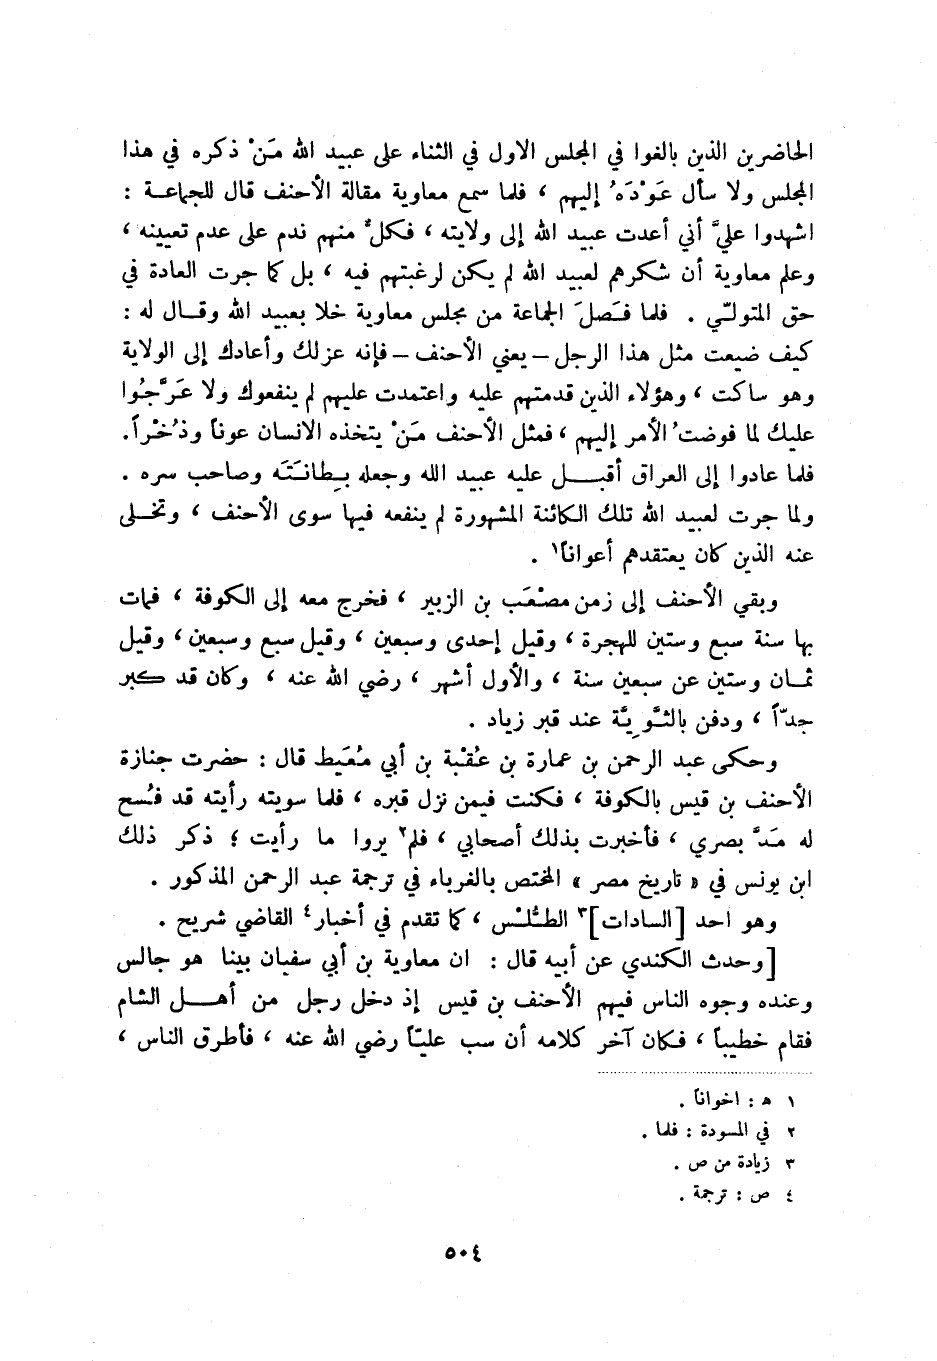 الحاضرين الذين بالغوا في المجلس الاول في الثناء على عبيد الله مَنْ ذكره في هذا
المجلس ولا سأل عَوْدَهُ إليهم ، فلما سمع معاوية مقالة الأحنف قال للجماعة :
اشهدوا عليَّ أني أعدت عبيد الله إلى ولايته ، فكلٌ منهم ندم على عدم تعيينه ،
وعلم معاوية أن شكرهم لعبيد الله لم يكن لرغبتهم فيه ، بل كما جرت العادة في
حق المتولّي . فلما فَصَلَ الجماعة من مجلس معاوية خلا بعبيد الله وقال له :
كيف ضيعت مثل هذا الرجل – يعني الأحنف – فإنه عزلك وأعادك إلى الولاية
وهو ساكت ، وهؤلاء الذين قدمتهم عليه واعتمدت عليهم لم ينفعوك ولا عَرَّجُوا
عليك لما فوضتُ الأمر إليهم ، فمثل الأحنف مَنْ يتخذه الانسان عوناً وذُخْراً .
فلما عادوا إلى العراق أقبل عليه عبيد الله وجعله بِطانَتَه وصاحب سره .
ولما جرت لعبيد الله تلك الكائنة المشهورة لم ينفعه فيها سوى الأحنف ، وتخلى
عنه الذين كان يعتقدهم أعواناً١ .
وبقي الأحنف إلى زمن مصْعَب بن الزبير ، فخرج معه إلى الكوفة ، فمات
بها سنة سبع وستين للهجرة ، وقيل إحدى وسبعين ، وقيل سبع وسبعين ، وقيل
ثمان وستين عن سبعين سنة ، والأول أشهر ، رضي الله عنه ، وكان قد كبر
جدّاً ، ودفن بالثَّوِيَّة عند قبر زياد .
وحكى عبد الرحمن بن عمارة بن عُقْبة بن أبي مُعَيط قال : حضرت جنازة
الأحنف بن قيس بالكوفة ، فكنت فيمن نزل قبره ، فلما سويته رأيته قد فُسح
له مَدَّ بصري ، فأخبرت بذلك أصحابي ، فلم٢ يروا ما رأيت ؛ ذكر ذلك
ابن يونس في « تاريخ مصر » المختص بالغرباء في ترجمة عبد الرحمن المذكور .
وهو احد [السادات]٣ الطُّلْس ، كما تقدم في أخبار٤ القاضي شريح .
[وحدث الكندي عن أبيه قال : ان معاوية بن أبي سفيان بينا هو جالس
وعنده وجوه الناس فيهم الأحنف بن قيس إذ دخل رجل من أهل الشام
فقام خطيباً ، فكان آخر كلامه أن سب عليّاً رضي الله عنه ، فأطرق الناس ،
١ ه : اخواناً .
٢ في المسودة : فلما .
٣ زيادة من ص .
٤ ص : ترجمة .
٥٠٤